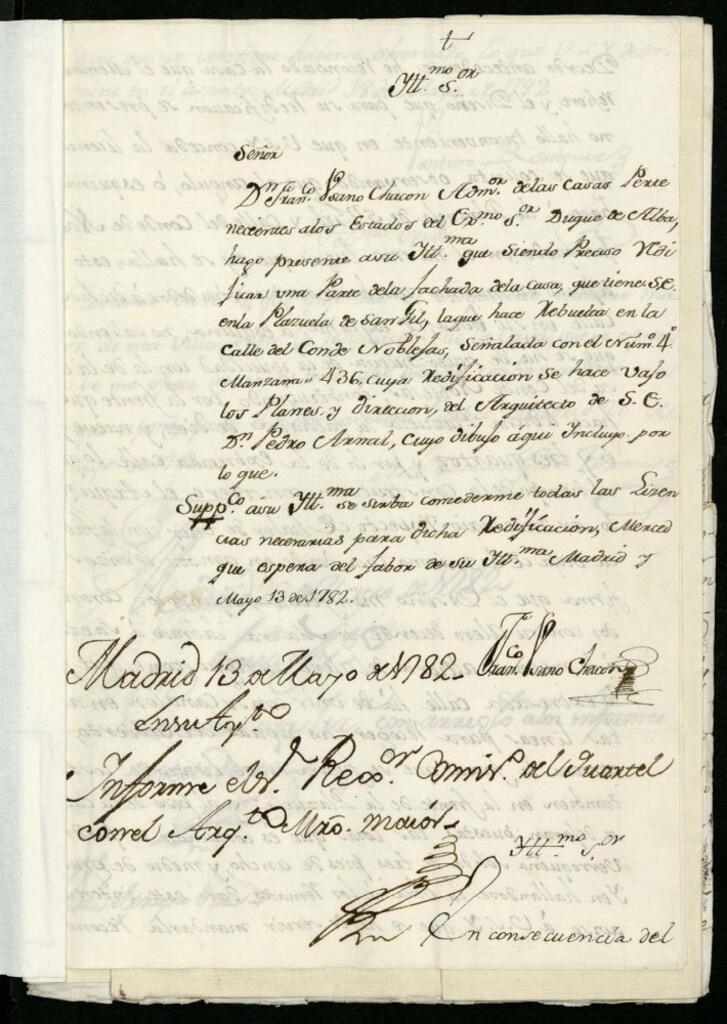 †
Ytt.mo S.or
Señor
D.n Fran.co Ysano Chacon Adm.or de las Casas Perte
necientes alos Estados del Ex.mo S.or Duque de Alba,
hago presente asu Ytt.ma que siendo Preciso Redi
ficar una Parte dela fachada dela Casa, que tiene S.E.
enla Plazuela de San Gil, laque hace Rebuelta en la
Calle del Conde Noblejas, Señalada con el Num.o 4.o
Manzana 436, cuya Redificacion se hace vajo
los Planes, y direccion, del Arquitecto de S. E.
D.n Pedro Arnal, Cuyo dibujo aqui Incluyo por
lo que.
Supp.co asu Ytt.ma se sirba concederme todas las Lizen
cias necesarias para dicha Redificacion, Merced
que espera del fabor de su Ytt.ma Madrid y
Mayo 13 de 1782.
Fran.co Ysano Chacon
Madrid 13 de Mayo de 1782.
En su Ay.to
Informe el S. Rex.or Comis.o del Quartel
con el Arq.to Mro. maior
Ytt.mo S.or
En consecuencia del